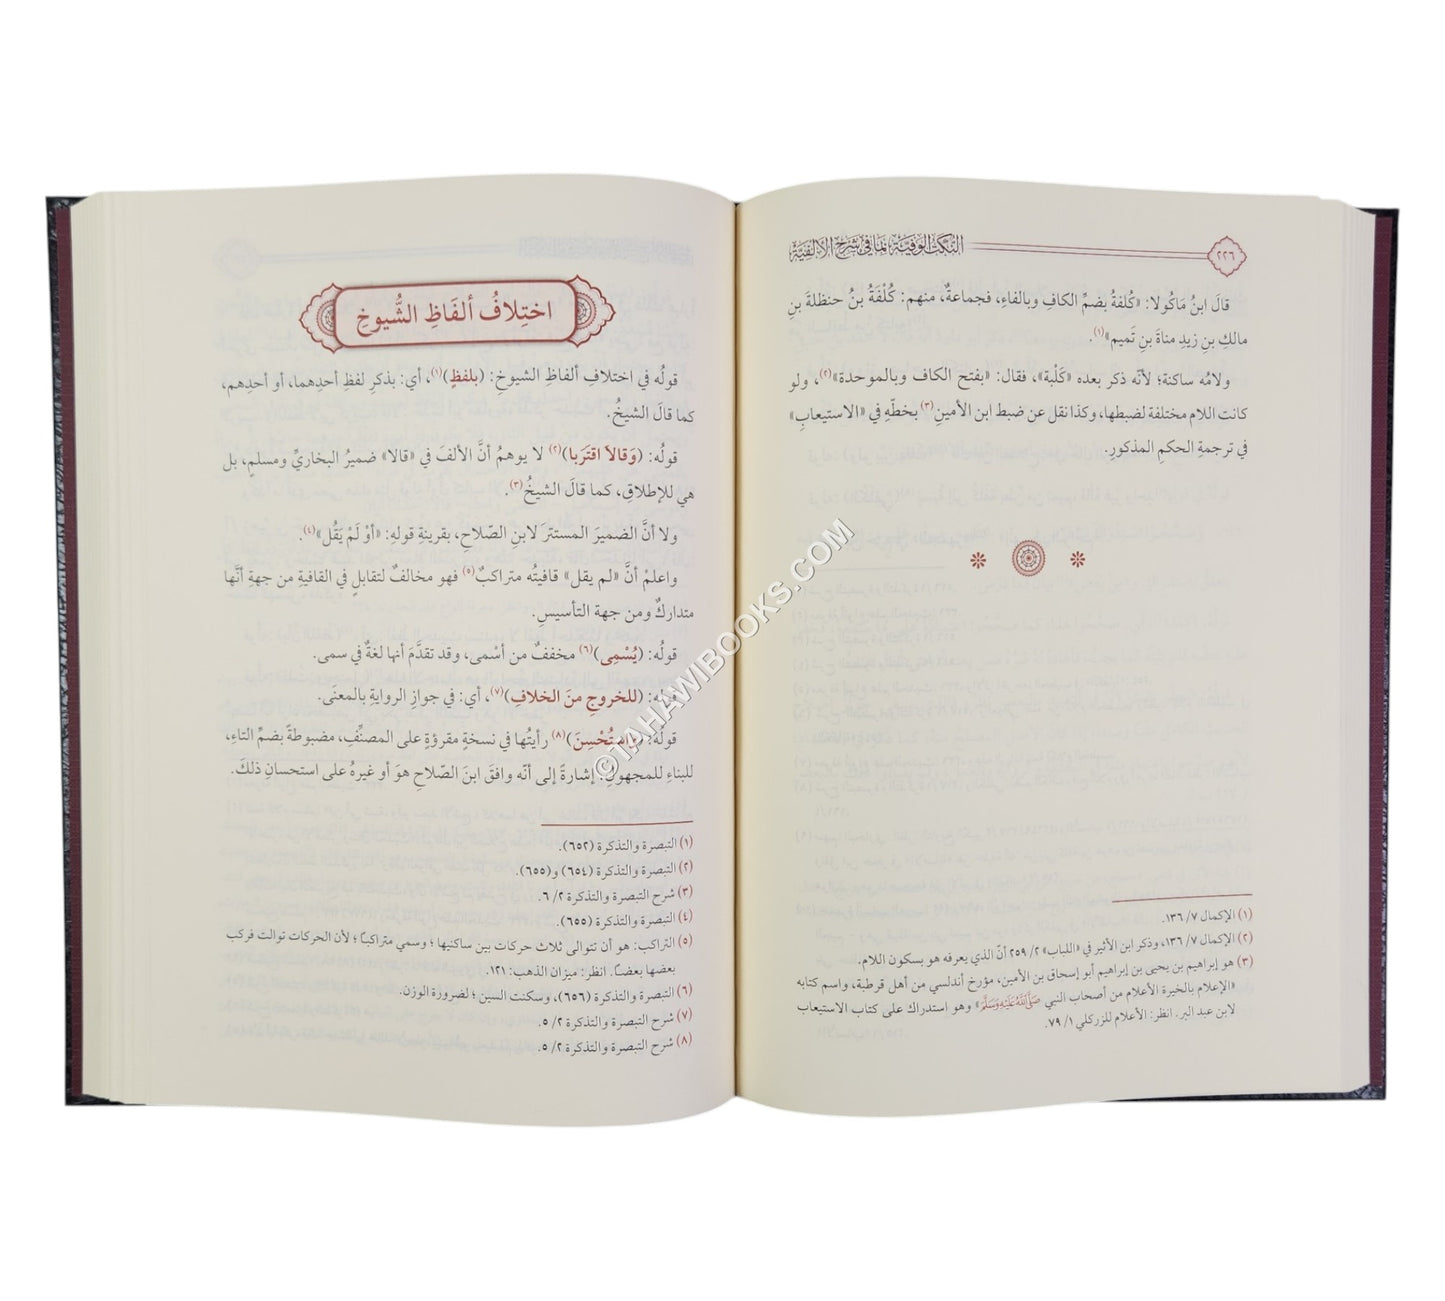 ٢٢٦
النكت الوفية بما في شرح الألفية
قالَ ابنُ مَاكُولا: «كُلفةُ بضمِّ الكافِ وبالفاءِ، فجماعةٌ، منهم: كُلْفَةُ بنُ حنظلةَ بنِ
مالكِ بنِ زيدِ مناةَ بنِ تَميم»(١).
ولامُه ساكنة؛ لأنّه ذكر بعده «كَلْبة»، فقال: «بفتح الكاف وبالموحدة»(٢)، ولو
كانت اللام مختلفة لضبطها، وكذا نقل عن ضبط ابن الأمين(٣) بخطّهِ في «الاستيعاب»
في ترجمةِ الحكمِ المذكورِ.
(١) الإكمال ٧/ ١٣٦.
(٢) الإكمال ٧/ ١٣٦، وذكر ابن الأثير في «اللباب» ٢/ ٢٥٩ أنّ الذي يعرفه هو بسكون اللام.
(٣) هو إبراهيم بن يحيى بن إبراهيم أبو إسحاق بن الأمين، مؤرخ أندلسي من أهل قرطبة، واسم كتابه
«الإعلام بالخيرة الأعلام من أصحاب النبي ﷺ» وهو استدراك على كتاب الاستيعاب
لابن عبد البر. انظر: الأعلام للزركلي ١/ ٧٩.
اختِلافُ ألفَاظِ الشُّيوخِ
قولُه في اختلافِ ألفاظِ الشيوخِ: (بلفظٍ)(١)، أي: بذكرِ لفظِ أحدِهما، أو أحدِهم،
كما قالَ الشيخُ.
قولُه: (وَقالاَ اقتَرَبا)(٢) لا يوهمُ أنَّ الألفَ في «قالا» ضميرُ البخاريِّ ومسلمٍ، بل
هي للإطلاقِ، كما قالَ الشيخُ(٣).
ولا أنَّ الضميرَ المستترَ لابنِ الصّلاحِ، بقرينةِ قولهِ: «أوْ لَمْ يَقُل»(٤).
واعلمْ أنَّ «لم يقل» قافيتُه متراكبٌ(٥) فهو مخالفٌ لتقابلٍ في القافيةِ من جهةِ أنَّها
متداركٌ ومن جهة التأسيسِ.
قولُه: (يُسْمِى)(٦) مخففٌ من أسْمى، وقد تقدَّمَ أنها لغةٌ في سمى.
قولُه: (للخروجِ منَ الخلافِ)(٧)، أي: في جوازِ الروايةِ بالمعنَى.
قولُه: (واستُحْسِنَ)(٨) رأيتُها في نسخةٍ مقرؤةٍ على المصنِّفِ، مضبوطةً بضمِّ التاءِ،
للبناءِ للمجهولِ؛ إشارةً إلى أنّه وافقَ ابنَ الصّلاحِ هوَ أو غيرهُ على استحسانِ ذلكَ.
(١) التبصرة والتذكرة (٦٥٢).
(٢) التبصرة والتذكرة (٦٥٤) و(٦٥٥).
(٣) شرح التبصرة والتذكرة ٢/ ٦.
(٤) التبصرة والتذكرة (٦٥٥).
(٥) التراكب: هو أن تتوالى ثلاث حركات بين ساكنيها ؛ وسمي متراكباً ؛ لأن الحركات توالت فركب
بعضها بعضاً. انظر: ميزان الذهب: ١٢١.
(٦) التبصرة والتذكرة (٦٥٦)، وسكنت السين ؛ لضرورة الوزن.
(٧) شرح التبصرة والتذكرة ٢/ ٥.
(٨) شرح التبصرة والتذكرة ٢/ ٥.
©TAHAWIBOOKS.COM